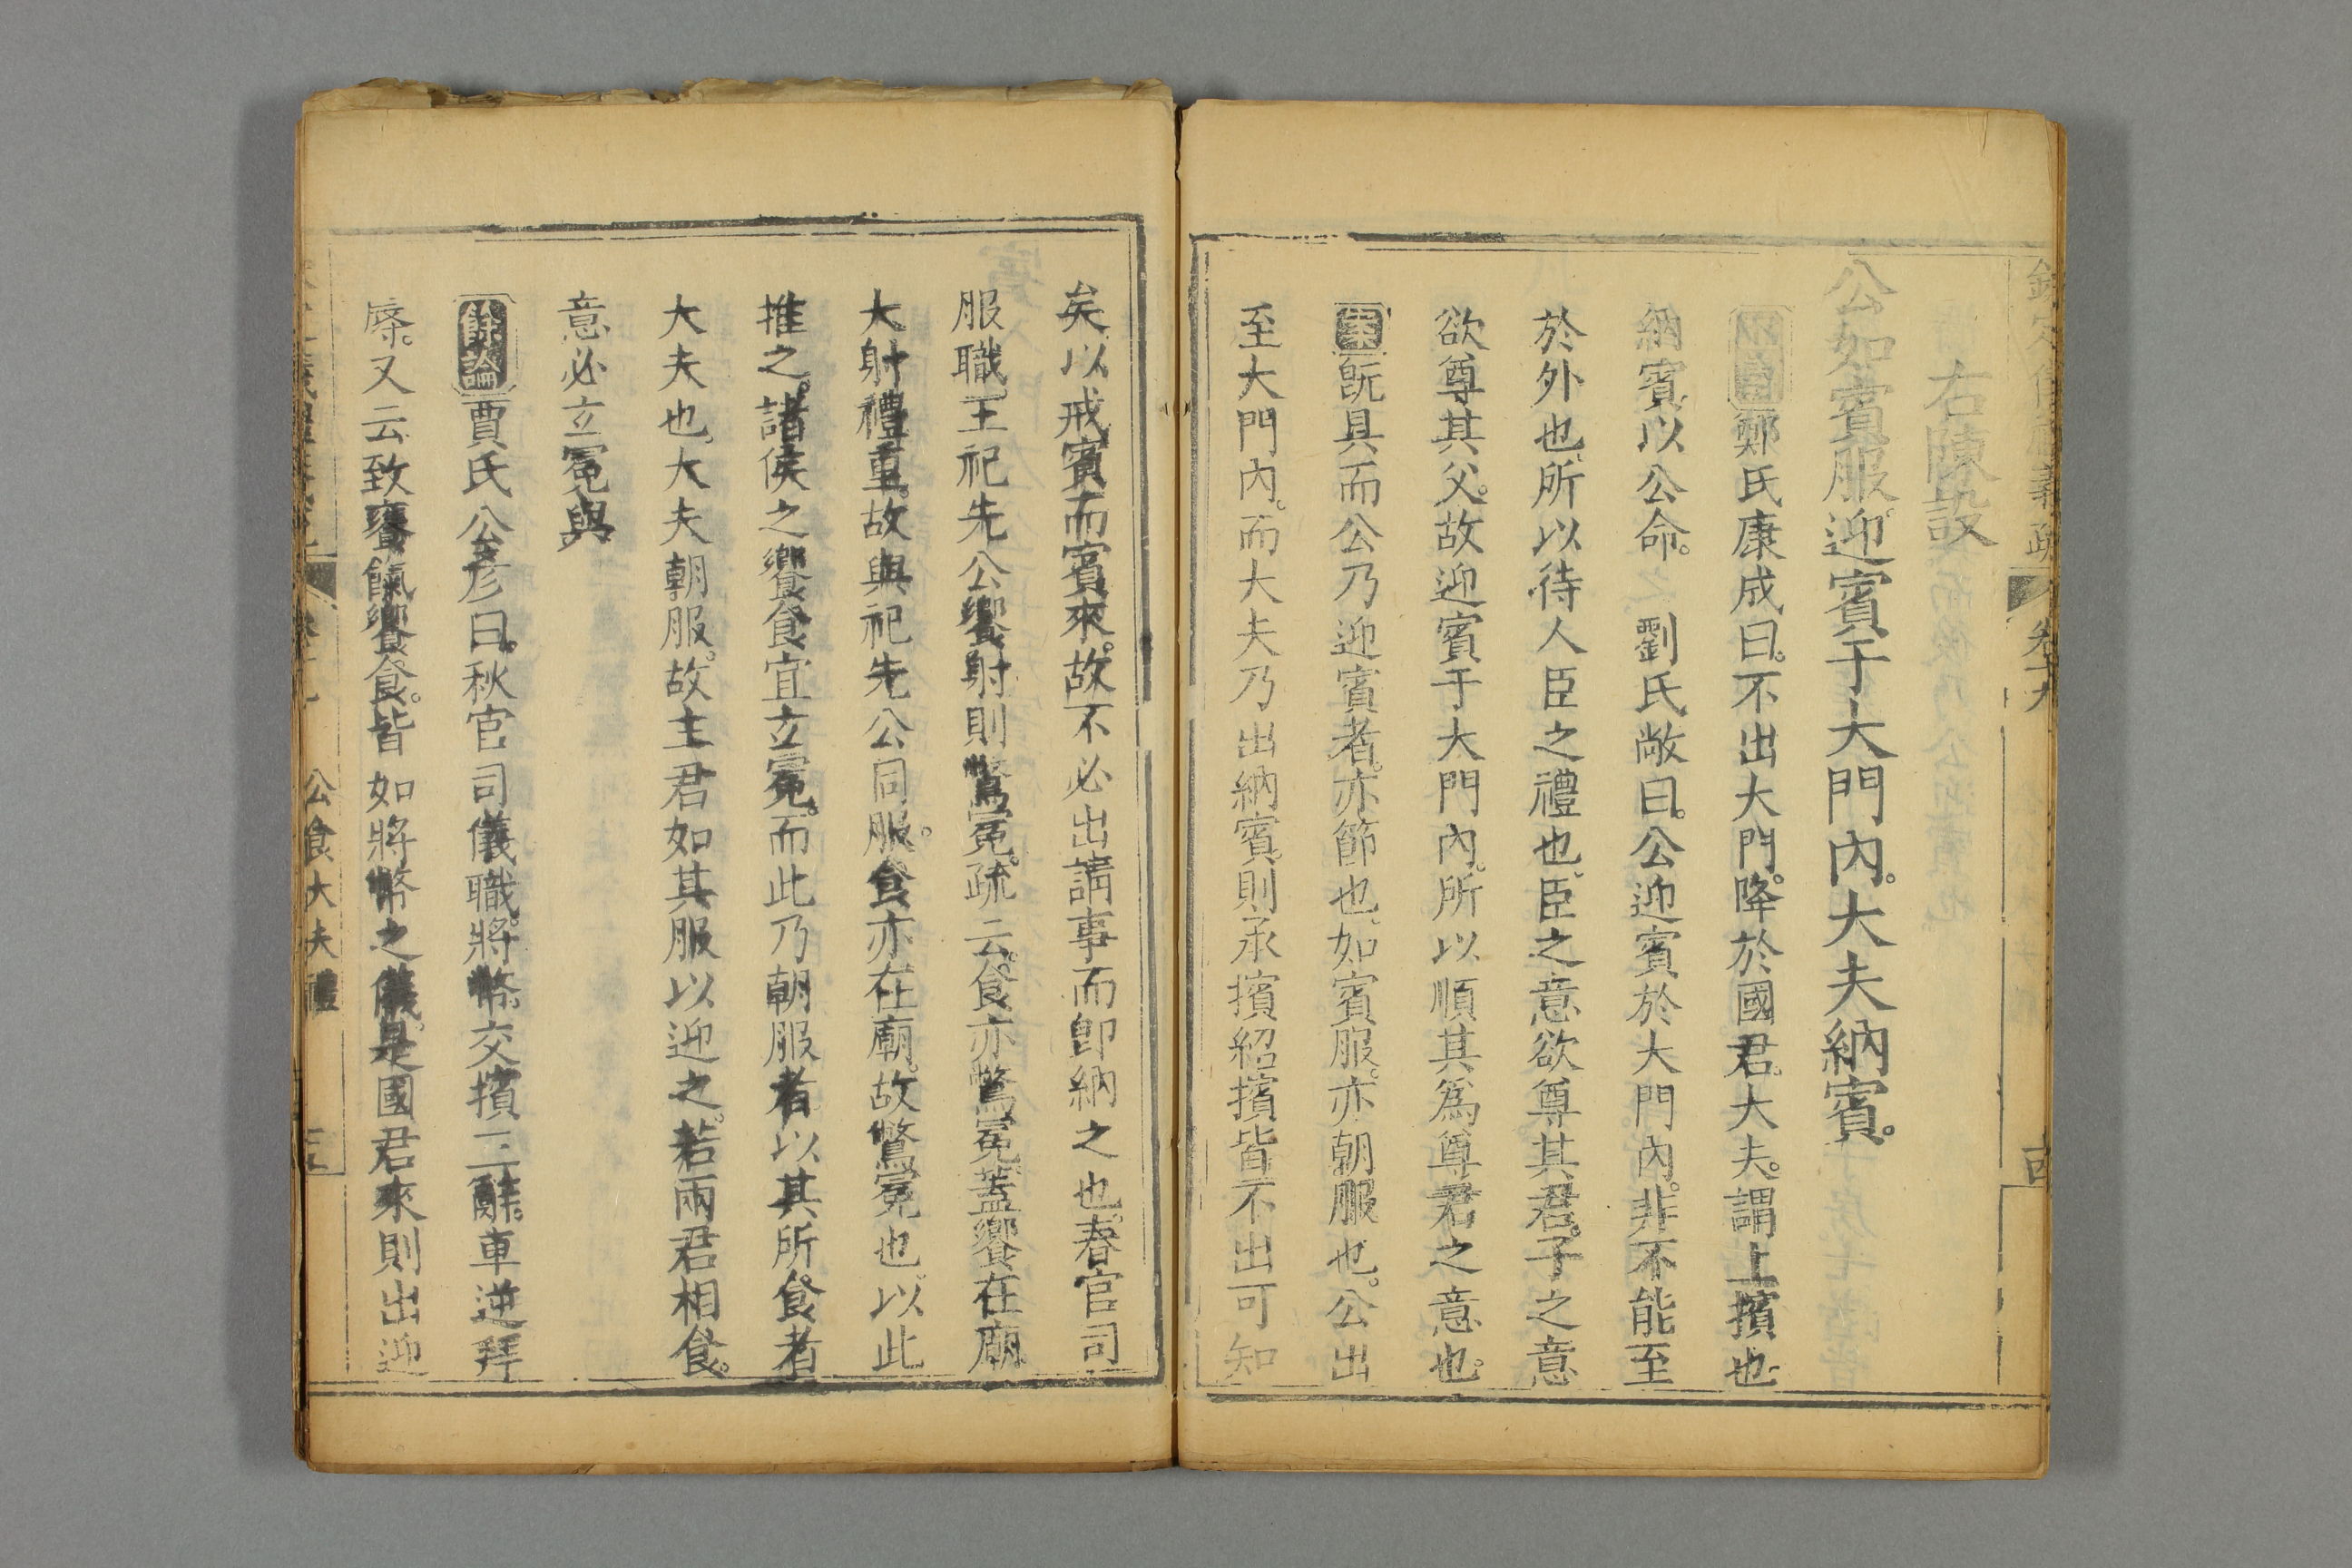 欽定儀禮義疏 卷十九
右陳設
公如賓服迎賓于大門內。大夫納賓。
鄭氏康成曰。不出大門。降於國君。大夫。謂上擯也。
納賓以公命。 劉氏敞曰。公迎賓於大門內。非不能至
於外也。所以待人臣之禮也。臣之意欲尊其君。子之意
欲尊其父。故迎賓于大門內。所以順其為尊君之意也。
案既具而公乃迎賓者。亦節也。如賓服。亦朝服也。公出
至大門內。而大夫乃出納賓。則承擯紹擯皆不出可知
矣。以戒賓而賓來。故不必出請事而卽納之也。春官司
服職。王祀先公饗射則驚冕。疏云。食亦鷩冕。蓋饗在廟。
大射禮重。故與祀先公同服。食亦在廟。故鷩冕也。以此
推之。諸侯之饗食宜立冕。而此乃朝服者。以其所食者
大夫也。大夫朝服。故主君如其服以迎之。若兩君相食。
意必立冕與
餘論賈氏公彥曰。秋官司儀職。將幣。交擯三辭。車逆拜
辱。又云。致饔餼饗食。皆如將幣之儀。是國君來則出迎
公食大夫禮